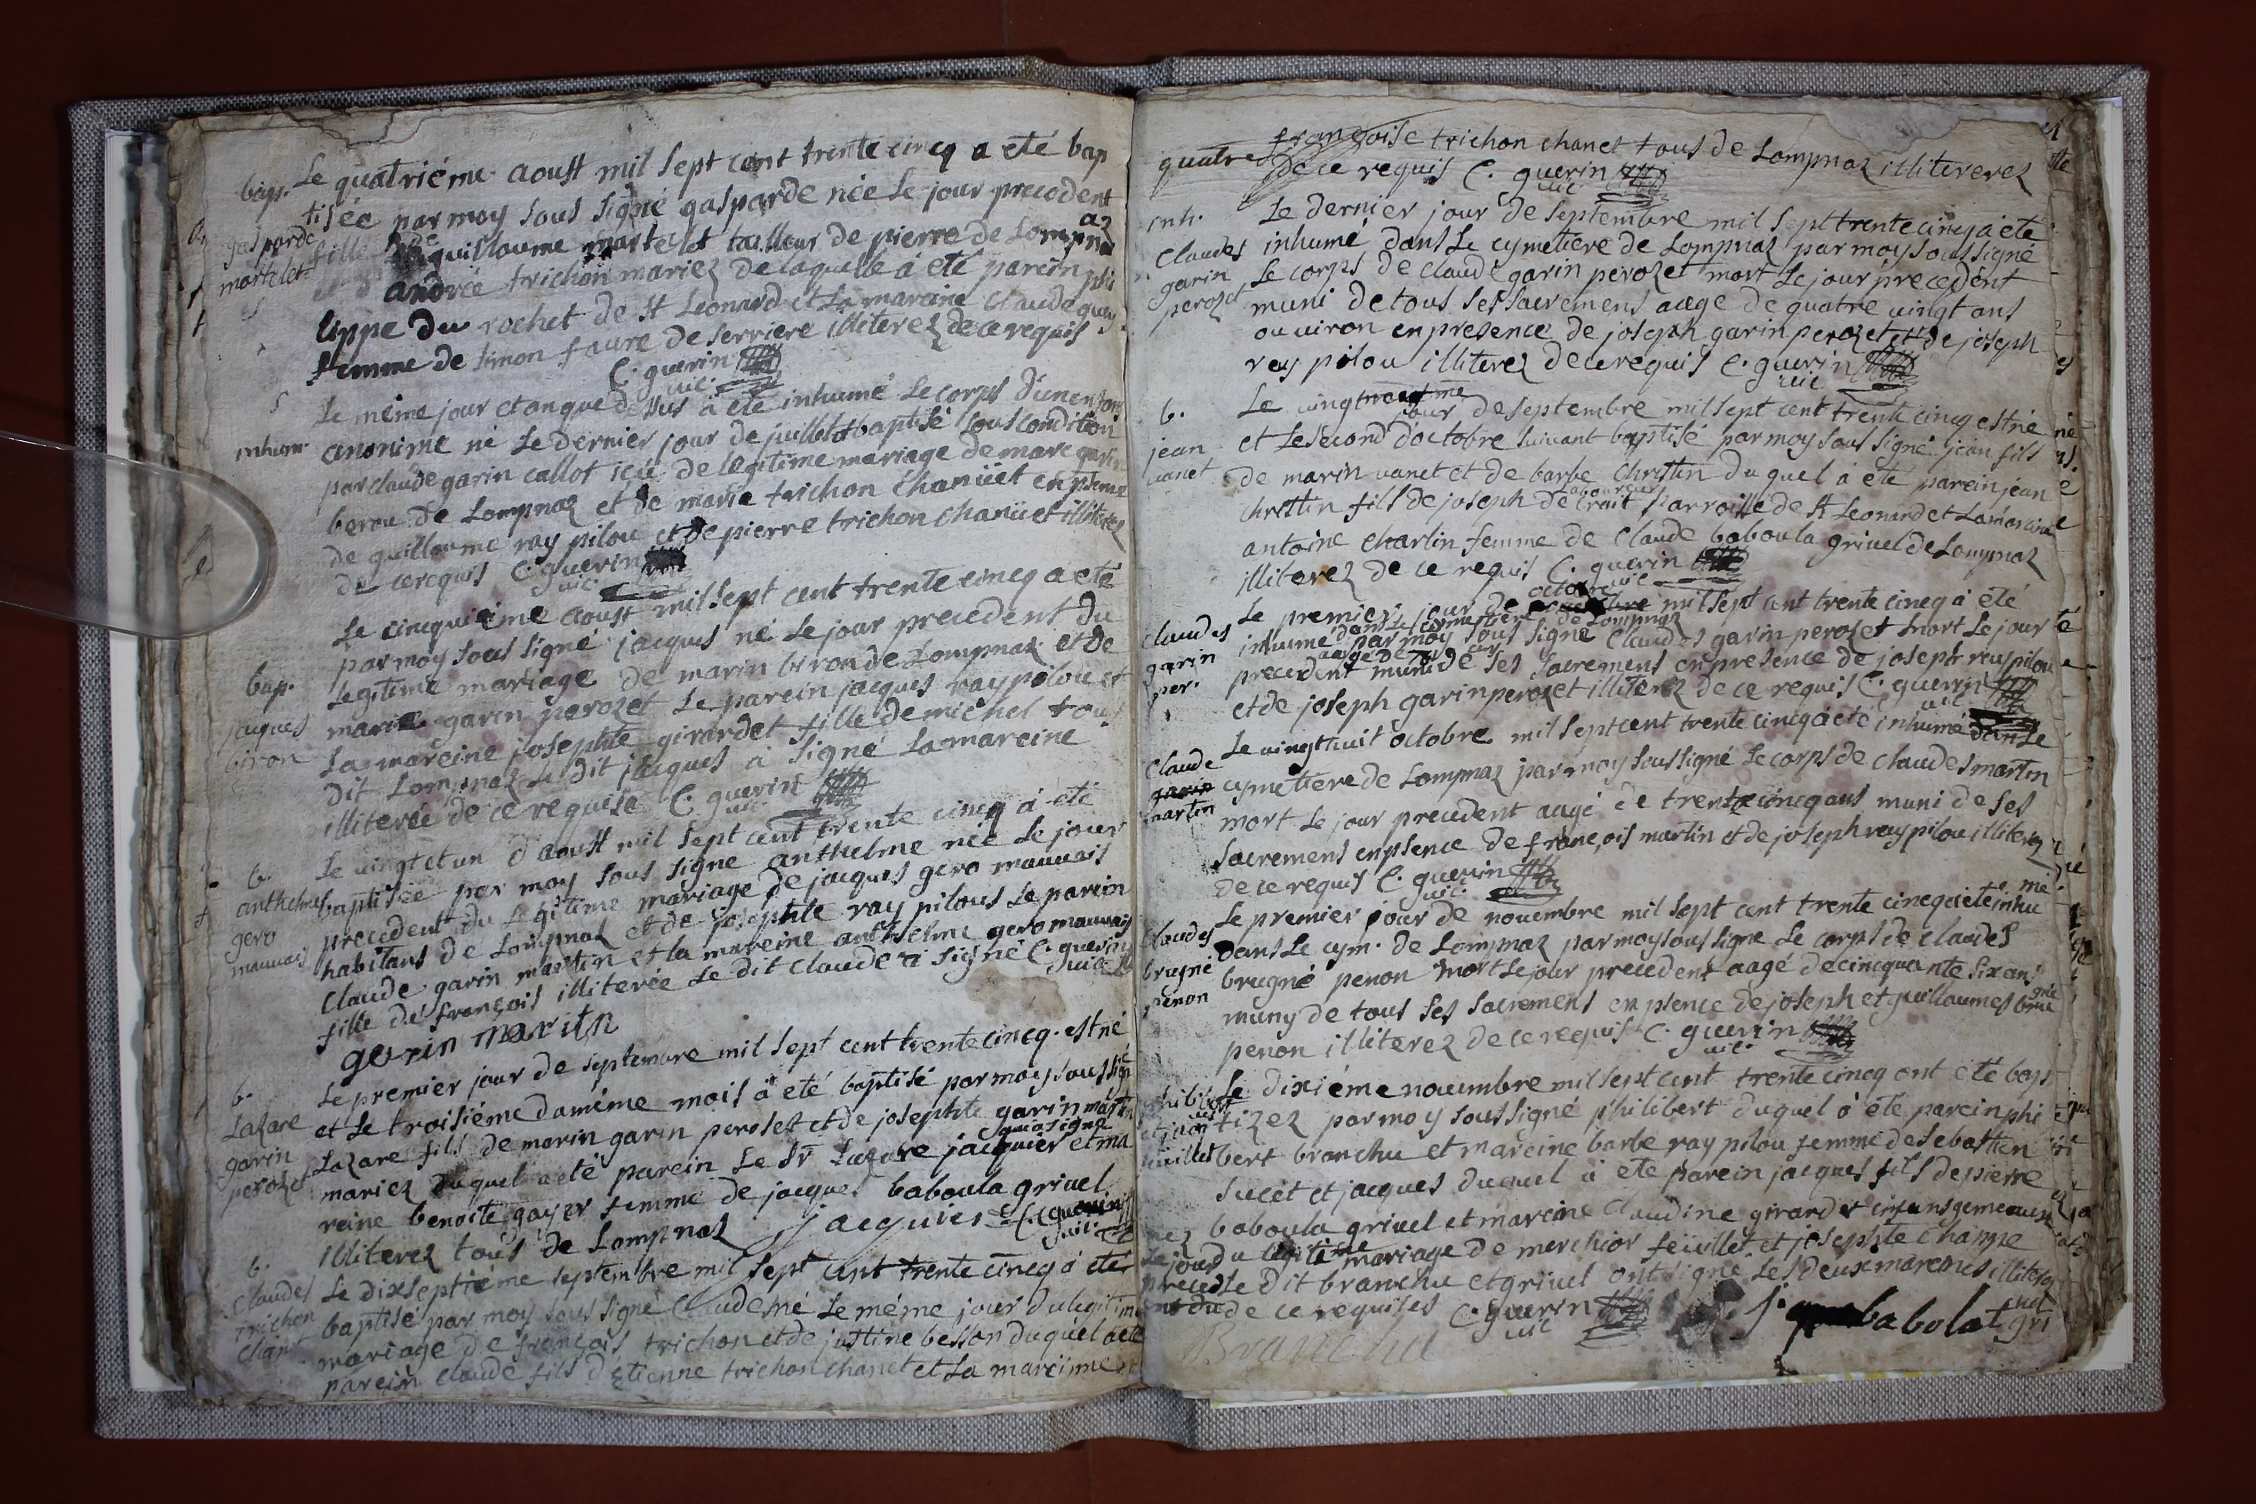 bap. Le quatriéme aoust mil sept cent trente cincq a eté bap
tisée par moy sous signé gasparde née Le jour precedent
gasparde
martelet
fille de guillaume martelet tailleur de pierre de Lompnaz
andrée trichon mariez de laquelle à eté parein phi
lippe du rochet de St Leonard et La mareine Clauda guy
femme de simon faure de serriere illiterez de ce requis
C. guerin
vic.
inhum.
Le même jour et an que dessus à eté inhumé Le corps d'un enfant
anonime né Le dernier jour de juillet et baptisé sous condition
par claude garin callot issu de legitime mariage de marc garin
berou de Lompnaz et de marie trichon chanüet en psence
de guillaume ray pilou et de pierre trichon chanüet illiterez
de ce requis C. guerin
vic.
Le cincquiéme aoust mil sept cent trente cincq a eté
bap.
jacques
biron
par moy sous signé jacques né Le jour precedent du
legitime mariage de marin biron de Lompnaz et de
marie garin perozet Le parein jacques ray pilou et
La mareine josephte girardet fille de michel tous
dit Lompnaz Le dit jacques à signé La mareine
illiterée de ce requise C. guerin
vic.
b.
anthelme
gero
mauvais
Le vingt et un d'aoust mil sept cent trente cincq à eté
baptisée par moy sous signé anthelme née Le jour
precedent du legitime mariage de jacques gero mauvais
habitans de Lompnaz et de josephte ray pilous Le parein
Claude garin martin et la mareine anthelme gero mauvais
fille de françois illiterée Le dit Claude a signé C. guerin
vic.
gerin maritn
b.
Lazare
garin
perozet
Le premier jour de septembre mil sept cent trente cincq est né
et Le troisiéme du méme mois à eté baptisé par moy sous signé
Lazare fils de marin garin perozet et de josephte garin martin
mariez duquel a eté parein Le Sr Lazare jacquier qui a signé et ma
reine benoite gayer femme de jacques baboula grivel
illiterez tous de Lompnaz jacquier C. guerin
vic.
b.
Claudes
trichon
chant
Le dixseptiéme septembre mil sept cent trente cincq à eté
baptisé par moy sous signé Claude né Le méme jour du legitime
mariage de françois trichon et de justine besson duquel a eté
parein claude fils d'Etienne trichon chanet et La mareinne
françoise trichon chanet tous de Lompnaz illiterez
quatre de ce requis C. guerin
vic
inh.
Claudes
garin
perozet
Le dernier jour de septembre mil sept trente cincq à eté
inhumé dans Le cymetiere de Lompnaz par moy sous signé
Le corps de claude garin perozet mort Le jour precedent
muni de tous ses sacremens aage de quatre vingt ans
ou viron en presence de joseph garin perozet et de joseph
ray pilou illiterez de ce requis C. guerin
vic
b.
jean
vanet
Le vingt jour de septembre mil sept cent trente cincq est né
et Le second d'octobre suivant baptisé par moy sous signé jean fils
de marin vanet et de barbe christin duquel à eté parein jean
christin fils de joseph de parroisse de St Leonard et La mareine
antoine charlin femme de Claude baboula grivel de Lompnaz
illiterez de ce requis C. guerin
vic
Claudes
garin
per.
Le premier jour de octobre mil sept cent trente cincq à eté
inhumé dans Le cymetiere de Lompnaz
par moy sous signé Claudes garin perozet mort Le jour
precedent muni de ses sacremens en presence de joseph ray pilou
et de joseph garin perozet illiterez de ce requis C. guerin
vic
Claude
garin
martin
Le vingthuit octobre mil sept cent trente cincq à eté inhumé dans Le
cymetiere de Lompnaz par moy sous signé Le corps de claudes martin
mort Le jour precedent aagé de trente cincq ans muni de ses
sacremens en psence de françois martin et de joseph ray pilou illiterez
de ce requis C. guerin
vic.
Claudes
brugné
penon
Le premier jour de novembre mil sept cent trente cincq à eté inhumé
dans Le cym. de Lompnaz par moy sous signé Le corps de claudes
brugné penon mort Le jour precedent aagé de cincquante six ans
muny de tous ses sacremens en psence de joseph et guillaumes brugné
penon illiterez de ce requis C. guerin
vic.
Le dixiéme novembre mil sept cent trente cincq ont eté bap
tizez par moy sous signé philibert duquel à eté parein phi
libert branchu et mareine barbe ray pilou femme de sebastien
sucet et jacques duquel à eté parein jacques fils de pierre
baboula grivel et mareine Claudine girardet enfans gemeaux
nez Le jour precedent du legitime mariage de merchior feüillet et josephte charme
Le dit branchu et grivel ont signé Les deux mareines illiterez
de ce requises C. guerin
vic
j. babolat gri
vel
Branchu